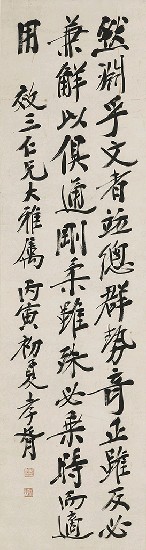 然淵乎文者並總群勢奇正雖反必
兼解以俱通剛柔雖殊必隨時而適
用
效三仁兄大雅屬 丙寅初夏 孝胥